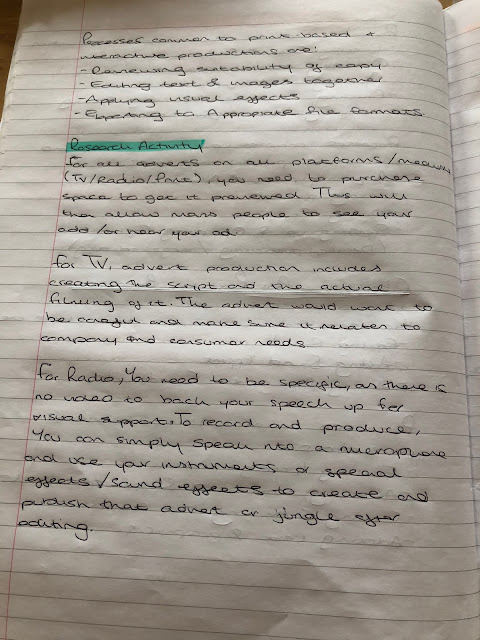 Processes common to print-based +
interactive productions are:
- Reviewing suitability of copy
- Editing text & images together
- Applying visual effects
- Exporting to Appropiate file formats.
Research Activity
For all adverts on all platforms/mediums
(TV/Radio/Print), you need to purchase
space to get it previewed. This will
then allow mass people to see your
add /or hear your ad.
For TV, advert production includes
creating the script and the actual
filming of it. The advert would want to
be careful and make sure it relates to
company and consumer needs.
For Radio, You need to be specific, as there is
no video to back your speech up for
visual support. To record and produce,
You can simply speak into a microphone
and use your instruments or special
effects/sound effects to create and
publish that advert or jingle after
editing.